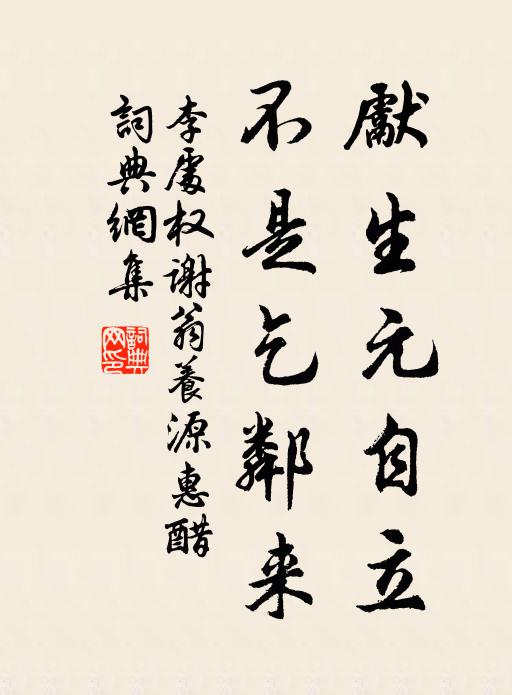 獻生元自立
不是乞鄰来
李處权谢翁養源惠醋
詞典網集
詞典网印